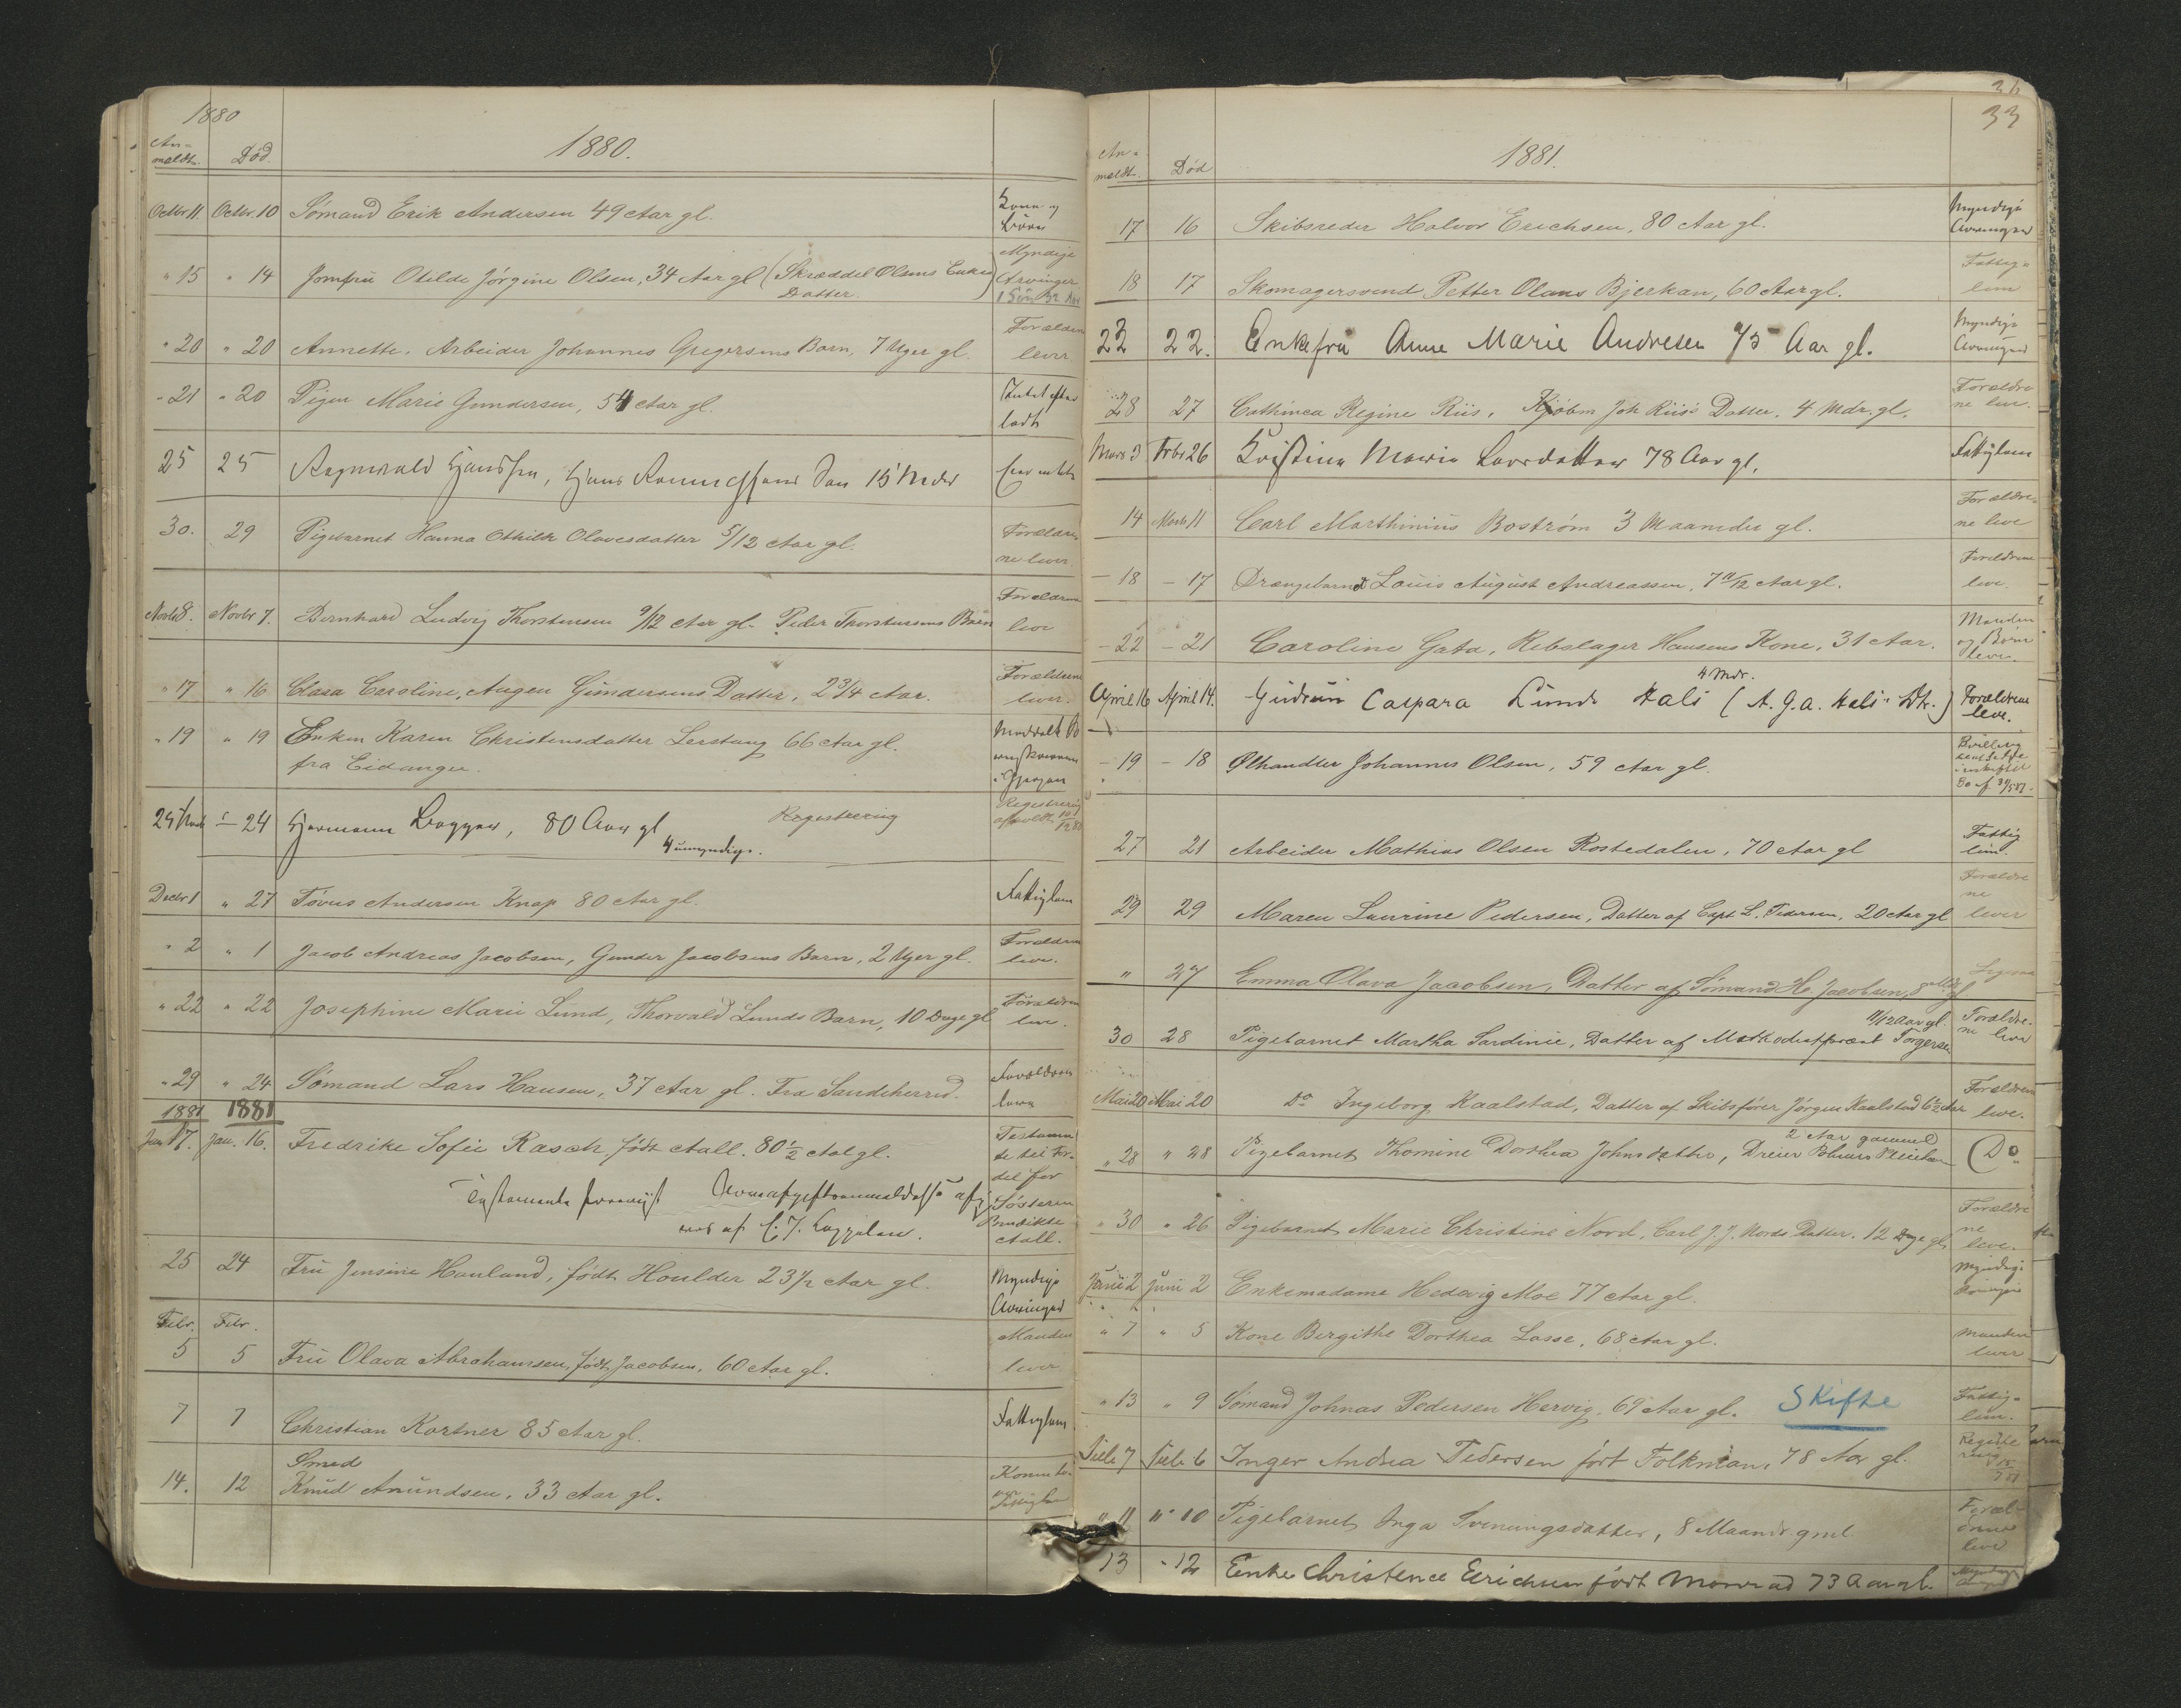 1880
An-
meldt. Død.
1880.
Octbr 11. Octbr. 10 Sömand Erik Andersen 49 Aar gl. Kone og
Börn
" 15 " 14 Jomfru Otilde Jörgine Olsen, 34 Aar gl (Skrædder Olsens Enkes
Datter.)
Myndige
Arvinger
" 20 " 20 Annette, Arbeider Johannes Gregersens Barn, 7 Uger gl. Forældrene
lever.
" 21 " 20 Pigen Marie Gundersen, 54 Aar gl. Intet efter
ladt
25 25 Ragnvald Hanssen, Hans Sön 15 Mdr
30. 29 Pigebarnet Hanna Othilde Olavesdatter 5/12 Aar gl. Forældre
ne lever.
Novbr 8. Novbr 7. Bernhard Ludvig Thorstensen 9/12 Aar gl. Peder Thorstensens Barn Forældrene
leve
" 17 " 16 Clara Caroline, Augen Gundersens Datter, 2 3/4 Aar. Forældrene
lever.
" 19 " 19 Enken Karen Christensdatter Lerstang 66 Aar gl.
fra Eidanger.
24 " 24 Hermann Bagger, 80 Aar gl Registrering
4 umyndige.
Registrering
Decbr 1 " 27 Törres Andersen Knap 80 Aar gl. Fattiglem
" 2 " 1 Jacob Andreas Jacobsen, Gunder Jacobsens Barn, 2 Uger gl. Forældrene
leve.
" 22 " 22 Josephine Marie Lund, Thorvald Lunds Barn, 10 Dage gl Forældrene
leve.
" 29 " 24 Sömand Lars Hansen, 37 Aar gl. Fra Sandeherred. Forældrene
leve
1881 1881
Jan 17. Jan. 16. Fredrike Sofie Rasch födt Aall. 80 1/2 Aar gl. Testamen
te til For-
del for
Sösteren
Benedikte
Aall.
25 24 Fru Jensine Houland, födt Houlder 23 1/2 Aar gl. Myndige
Arvinger
Febr. Febr.
5 5 Fru Olava Abrahamsen, födt Jacobsen, 60 Aar gl. Manden
lever
7 7 Christian Kortner 85 Aar gl. Fattiglem
Smed
14. 12 Knud Anundsen, 33 Aar gl.
36
33
An-
meldt. Död
1881.
17 16 Skibsreder Halvor Erichsen, 80 Aar gl. Myndige
Arvinger
18 17 Skomagersvend Petter Olaus Bjerkan, 60 Aar gl. Fattig-
lem
22 22. Enkefru Anne Marie Andresen 75 Aar gl. Myndige
Arvinger
28 27 Cathinca Regine Riis, Kjöbm Joh Riis's Datter, 4 Mdr. gl. Forældre
ne leve.
Mars 3 Febr 26 Kristine Marie Larsdatter 78 Aar gl. Fattiglem
14 Marts 11 Carl Marthinius Boström 3 Maaneder gl. Forældre-
ne leve
- 18 - 17 Drengebarnet Louis August Andreassen, 7 11/12 Aar gl. Forældrene
leve.
- 22 - 21 Caroline Gata, Rebslager Hansens Kone, 31 Aar. Manden
og Börn
leve.
4 Mdr.
April 16 April 14. Gudrun Caspara Lund Hals (A. G. A. Hals' Dt.) Forældrene
leve.
- 19 - 18 Ølhandler Johannes Olsen, 59 Aar gl.
27 21 Arbeider Mathias Olsen Rostedalen, 70 Aar gl Fattig
lem.
29 29 Maren Laurine Pedersen, Datter af Capt. L. Pedersen, 20 Aar gl Forældre
ne
lever
" 27 Emma Olava Jacobsen, Datter af Sömand H. Jacobsen, 8 Mdr gl
11/12 Aar gl.
30 28 Pigebarnet Martha Sardinie, Datter af Methodistpræst Torgersen Forældre-
ne leve
Mai 20 Mai 20 Do Ingeborg Kaalstad, Datter af Skibsförer Jörgen Kaalstad 6 1/2 Aar Forældrene
leve.
2 Aar gammel
" 28 " 28 Pigebarnet Thomine Dorthea Johnsdatter, Dreier Do
" 30 " 26 Pigebarnet Marie Christine Nord, Carl J. J. Nords Datter. 12 Dage gl Forældre
ne
leve.
Juni 2 Juni 2 Enkemadame Hedevig Moe 77 Aar gl. Myndige
Arvinger
" 7 " 5 Kone Birgithe Dorthea Lasse, 68 Aar gl. Manden
lever
" 13 " 9 Sömand Johnas Pedersen Hervig, 69 Aar gl. Skifte Fattig-
lem.
Juli 7 Juli 6 Inger Andrea Pedersen fört Folkman, 78 Aar gl. Registre
ring
" 11 " 10 Pigebarnet Inga Svenungsdatter, 8 Maandr. gml. Foræl-
drene
leve
13 - 12 Enke Christence Erichsen födt Monrad 73 Aar gl.